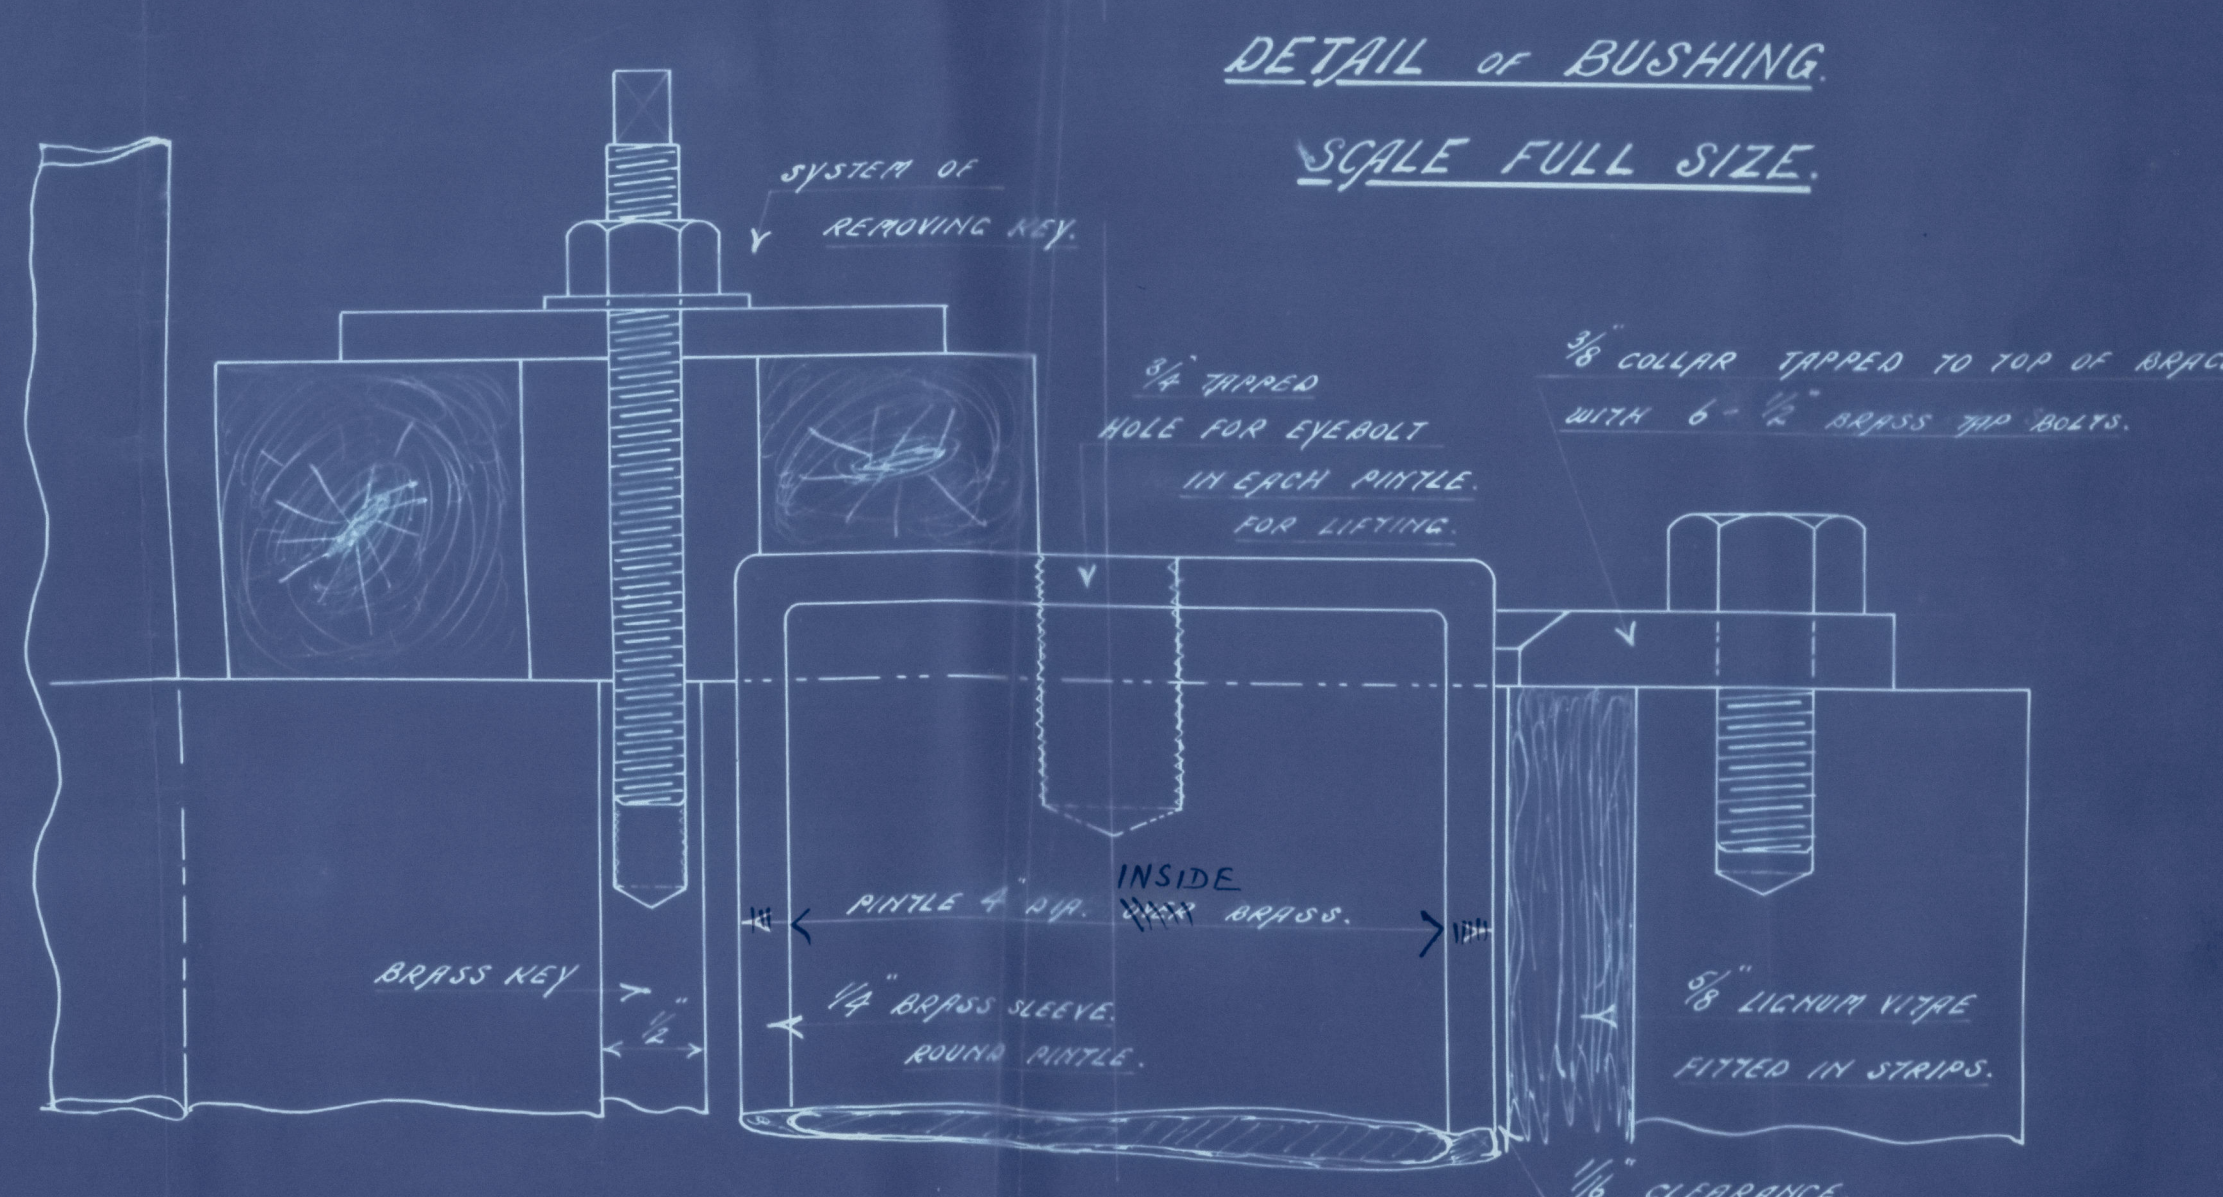 DETAIL OF BUSHING.
SCALE FULL SIZE.
SYSTEM OF
REMOVING KEY.
3/4" TAPPED
HOLE FOR EYEBOLT
IN EACH PINTLE.
FOR LIFTING.
3/8" COLLAR TAPPED TO TOP OF BRAC
WITH 6 - 1/2" BRASS TAP BOLTS.
INSIDE
PINTLE 4" DIA. BRASS.
BRASS KEY
1/2"
1/4" BRASS SLEEVE.
ROUND PINTLE.
5/8" LIGNUM VITAE
FITTED IN STRIPS.
1/16" CLEARANCE